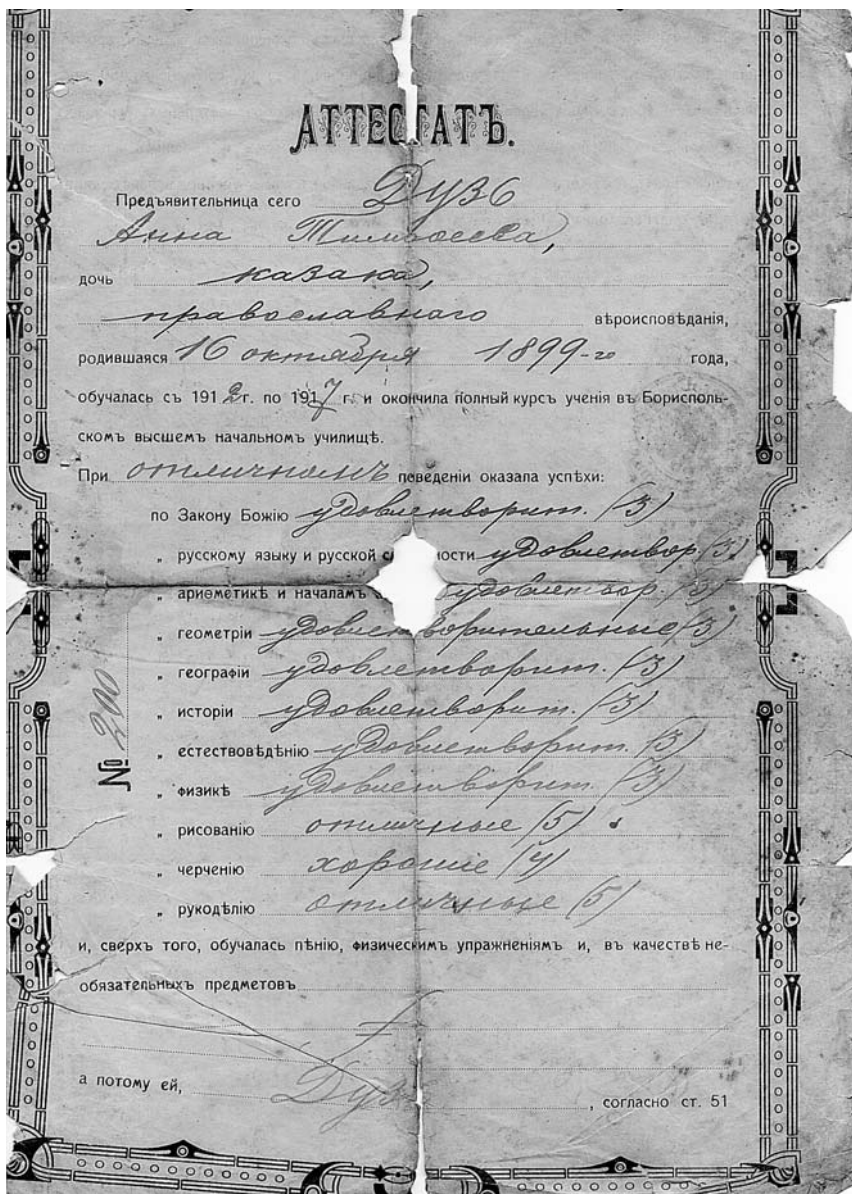 АТТЕСТАТЪ.
Предъявительница сего Дузь
Анна Тимоѳеева,
дочь казака,
православнаго вѣроисповѣданія,
родившаяся 16 октября 1899-го года,
обучалась съ 1912 г. по 1917 г. и окончила полный курсъ ученія въ Бориспольскомъ высшемъ начальномъ училищѣ.
При отличномъ поведеніи оказала успѣхи:
по Закону Божію удовлетворит. (3)
„ русскому языку и русской ности удовлетвор. (3)
„ ариѳметикѣ и началамъ удовлетвор. (3)
„ геометріи удовлетворительные (3)
„ географіи удовлетворит. (3)
„ исторіи удовлетворит. (3)
„ естествовѣдѣнію удовлетворит. (3)
„ физикѣ удовлетворит. (3)
„ рисованію отличные (5)
„ черченію хорошіе (4)
„ рукодѣлію отличные (5)
и, сверхъ того, обучалась пѣнію, физическимъ упражненіямъ и, въ качествѣ не-
обязательныхъ предметовъ
а потому ей, Дузь , согласно ст. 51
№ 200